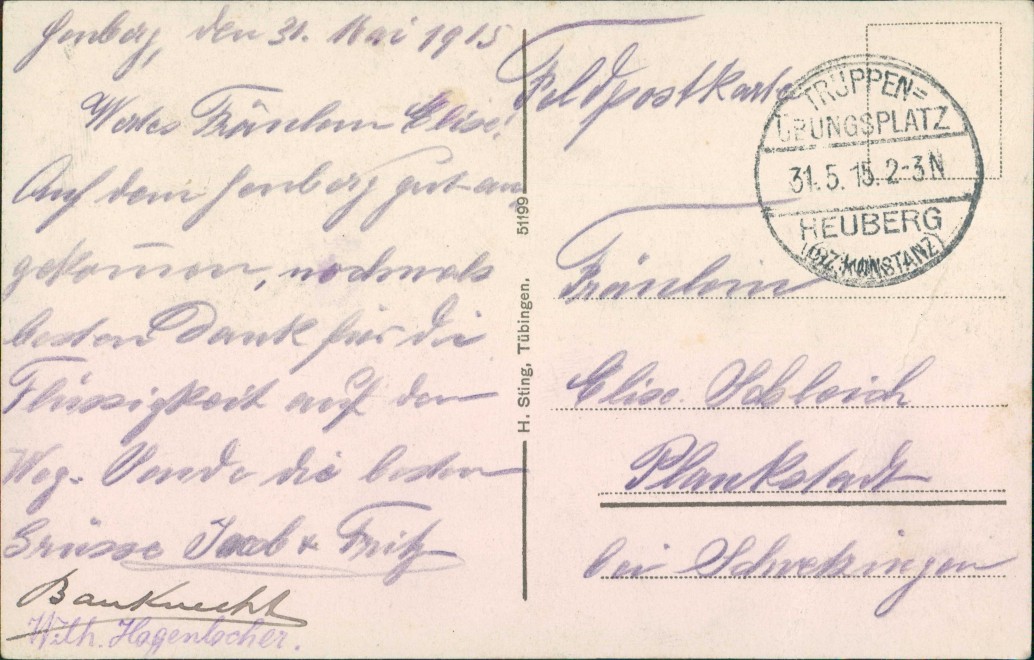 Heuberg, den 31. Mai 1915
Wertes Fräulein Elise!
Auf dem Heuberg gut an
gekommen, nochmals
besten Dank für die
Flüssigkeit auf den
Weg. Sende die besten
Grüsse Jacob & Fritz
Bauknecht
Wilh. Hagenlocher.
H. Sting, Tübingen. 51199
Feldpostkarte
TRUPPEN=
ÜBUNGSPLATZ
31.5.15. 2-3N
HEUBERG
(BZ. KONSTANZ)
Fräulein
Elise Schleich
Plankstadt
bei Schwetzingen